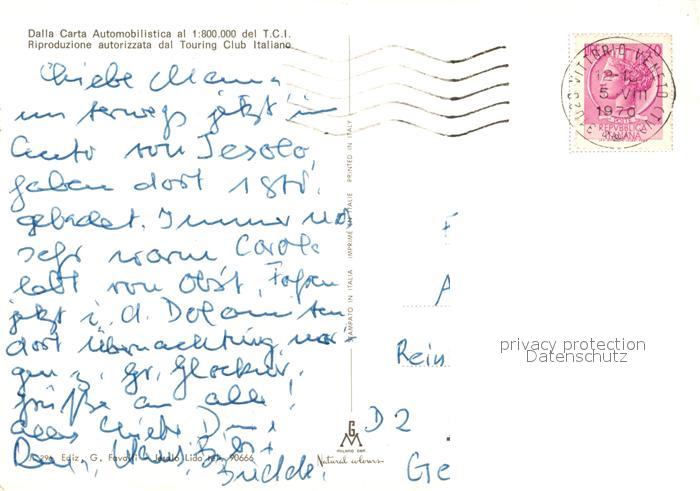 Dalla Carta Automobilistica al 1:800.000 del T.C.I.
Riproduzione autorizzata dal Touring Club Italiano
Liebe Mama
unterwegs jetzt im
Auto von Jesolo,
haben dort 1 Std.
gebadet. Immer noch
sehr warm Carola
lebt von Obst,
jetzt i. d. Dolomiten
dort Übernachtung, mor-
gen z. Gr. Glockner.
Grüße an alle!
alles Liebe
VITTORIO VENETO (TV)
5-VIII
1970
POSTE
REPVBBLICA
ITALIANA
STAMPATO IN ITALIA IMPRIMÉ EN ITALIE PRINTED IN ITALY
Rein
D 2
Ge
privacy protection
Datenschutz
GM
MILANO DEP.
Natural colours
Ediz. G. Jesolo Lido 90666